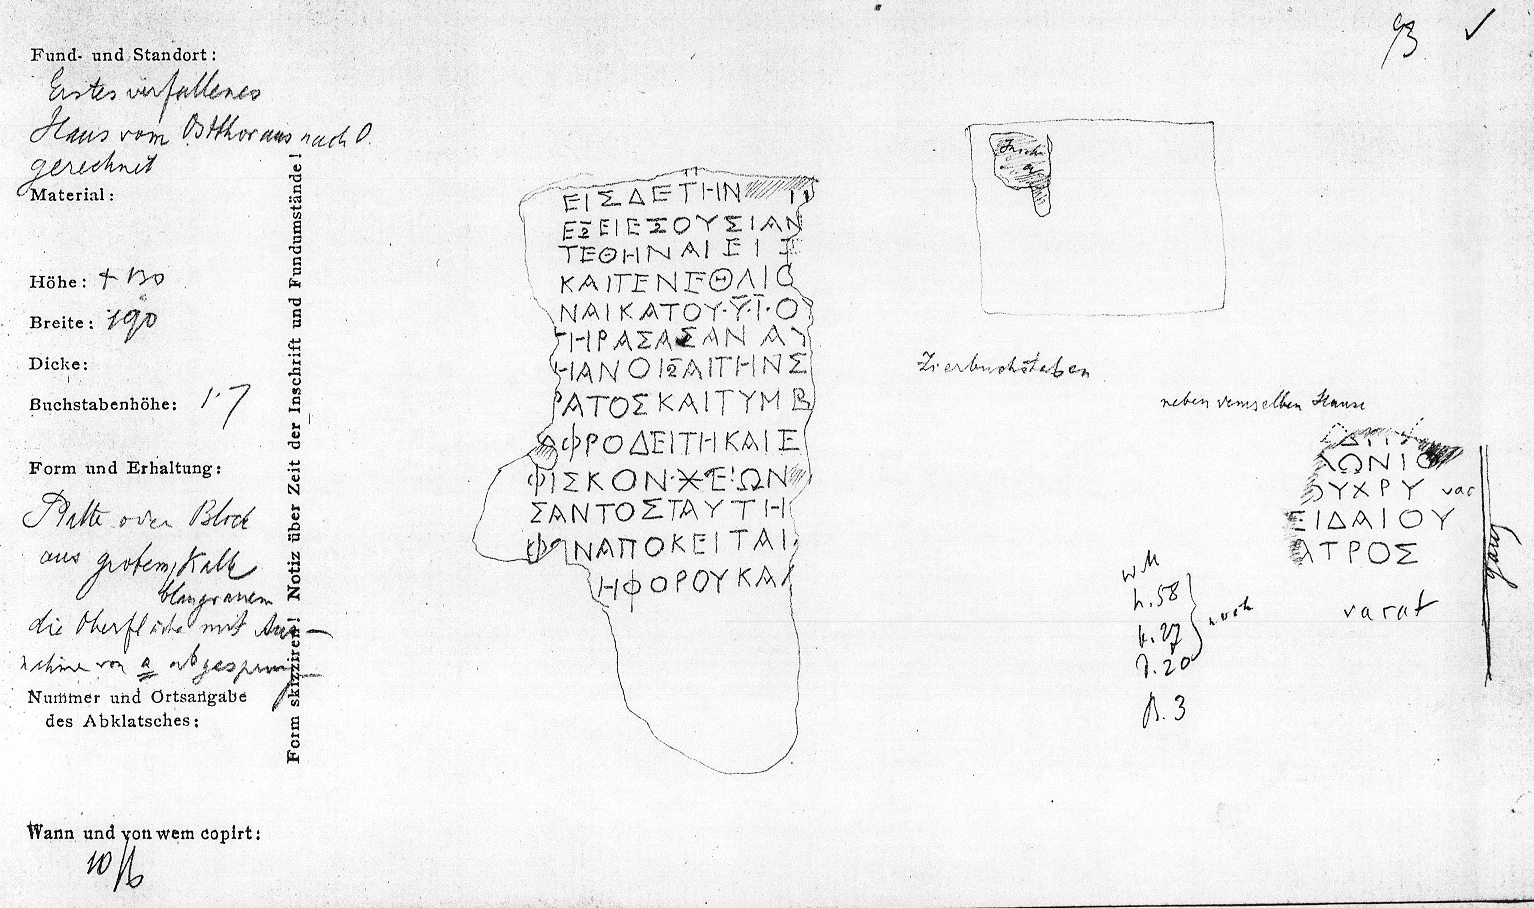 93 ✓
Fund- und Standort:
Erstes verfallenes
Haus vom Ostthor aus nach O.
gerechnet
Material:
Höhe: + 130
Breite: 190
Dicke:
Buchstabenhöhe: 1·7
Form und Erhaltung:
Platte oder Block
aus grobem, Kalk
blaugrauem
die Oberfläche mit Aus-
nahme von a abgesprung
Nummer und Ortsangabe
des Abklatsches:
Wann und von wem copirt:
10/
Form skizziren! Notiz über Zeit der Inschrift und Fundumstände!
ΕΙΣΔΕΤΗΝ
ΕΞΕΙΕΞΟΥΣΙΑΝ
ΤΕΘΗΝΑΙΕΙΣ
ΚΑΙΓΕΝΕΘΛΙΟ
ΝΑΙΚΑΤΟΥ·Υ·Ι·Ο
ΤΗΡΑΣΑΣΑΝΑΥ
ΗΑΝΟΙΞΑΙΤΗΝΣ
ΡΑΤΟΣΚΑΙΤΥΜΒ
ΑΦΡΟΔΕΙΤΗΚΑΙΕ
ΦΙΣΚΟΝ·Ӿ·Ε·ΩΝ
ΣΑΝΤΟΣΤΑΥΤΗ
ΝΑΠΟΚΕΙΤΑΙ
ΗΦΟΡΟΥΚΑΙ
Inschr
a
Zierbuchstaben
neben demselben Hause
ΛΩΝΙΟ
ΟΥΧΡΥ vac
ΕΙΔΑΙΟΥ
ΑΤΡΟΣ
vacat
w M
h. 58
b. 27
d. 20
noch
B. 3